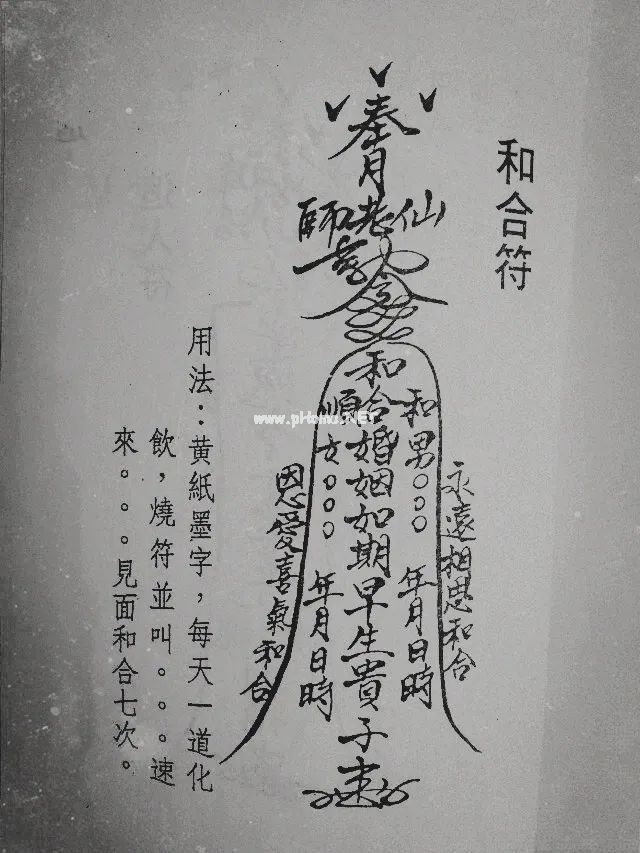 和合符
奉月
師老仙
永遠相思和合
和男○○○ 年月日時
和合婚姻如期早生貴子
順女○○○ 年月日時
恩愛喜氣和合
用法：黄紙墨字，每天一道化
飲，燒符並叫。。。速
來。。。見面和合七次。
www.pHome.NET